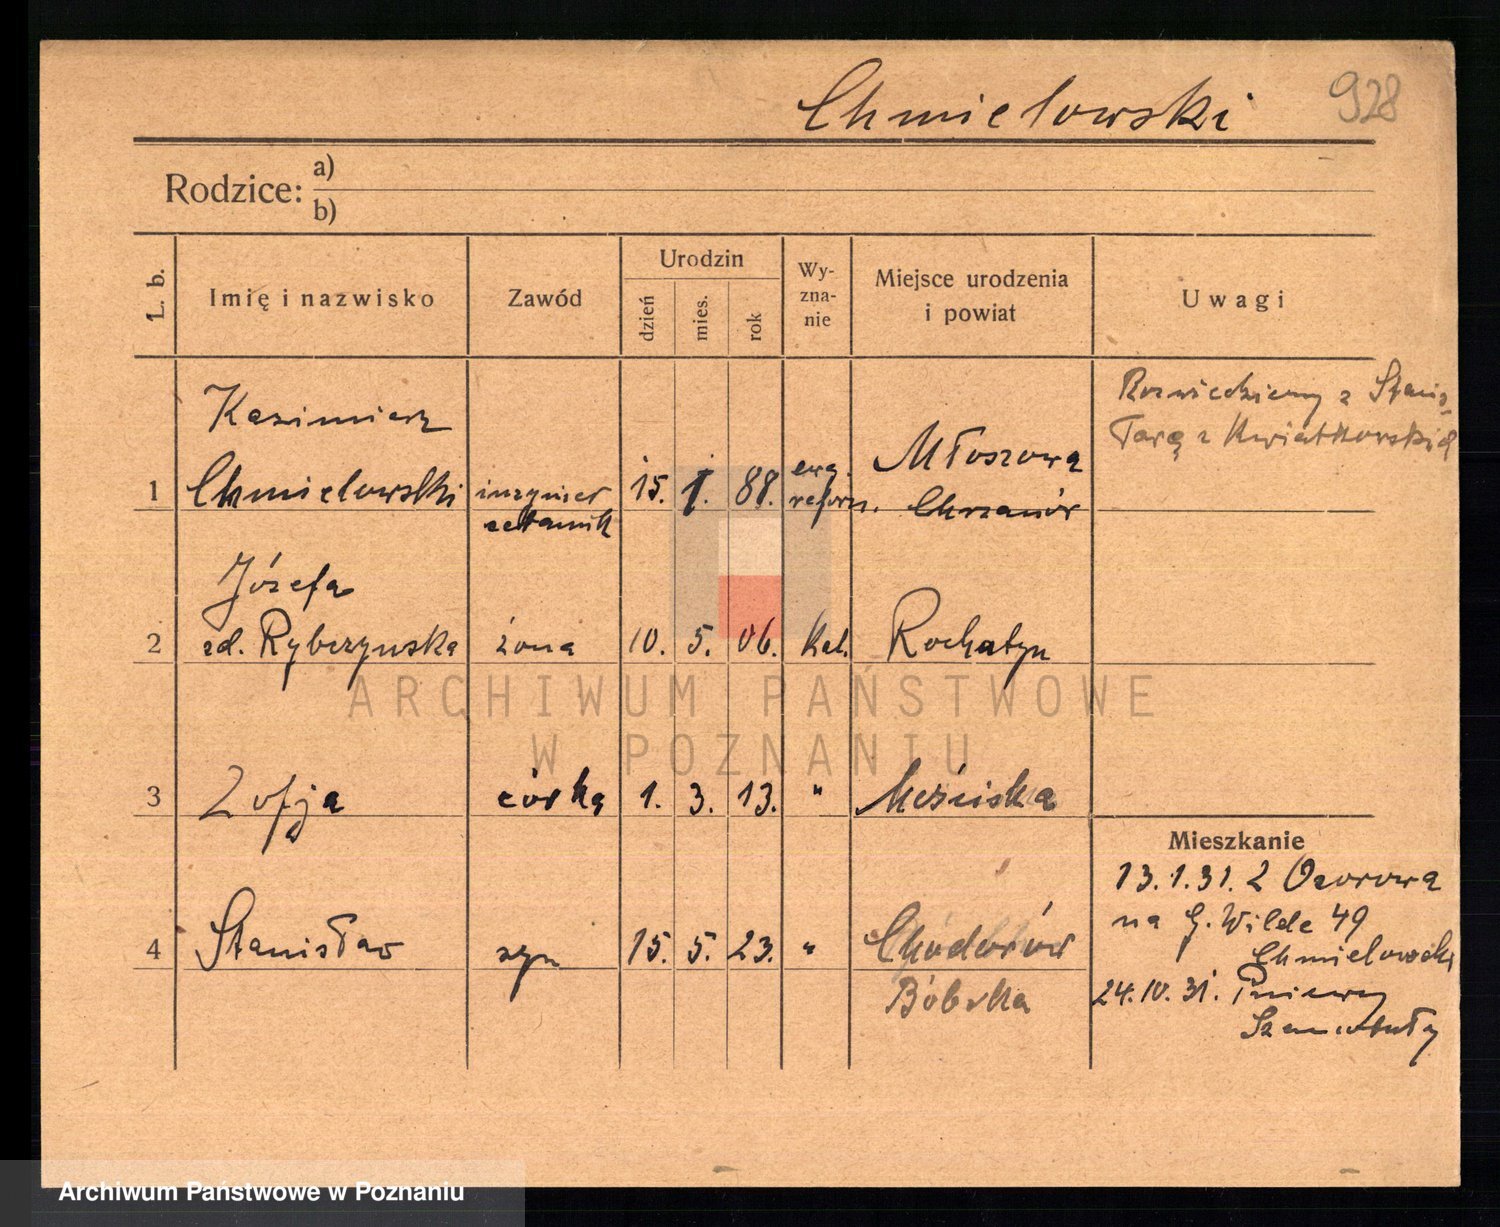 Chmielowski 928
Rodzice: a)
b)
L. b. Imię i nazwisko Zawód Urodzin dzień mies. rok Wy-zna-nie Miejsce urodzenia i powiat Uwagi
Kazimierz
1 Chmielowski inżynier 15. 1. 88. ewg. reform. Młoszowa
Chrzanów
Rozwiedziony z Stanis-
ławą z Kwiatkowskich
Józefa
2 zd. Rybczynska żona 10. 5. 06. kat. Rochatyn
3 Zofja córka 1. 3. 13. " Mościska
4 Stanisław syn 15. 5. 23. " Chodorów
Bóbrka
Mieszkanie
13.1.31. z Ozorowa
na G. Wilde 49
Chmielowski
24.10.31. Pniewy
Szamotuły
ARCHIWUM PAŃSTWOWE
W POZNANIU
Archiwum Państwowe w Poznaniu